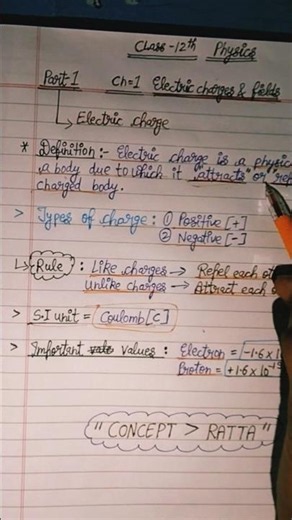 Class - 12th Physics
Part-1 Ch=1 Electric charges & fields
↳ Electric charge
* Definition:- Electric charge is a physic
a body due to which it "attracts" or "rep
charged body.
> Types of charge : ① Positive [+]
② Negative [-]
↳ Rule : Like charges → Repel each ot
Unlike charges → Attract each o
> S.I unit = Coulomb [C]
> Important values : Electron = -1.6 x 1
Proton = +1.6 x 10
"CONCEPT > RATTA"